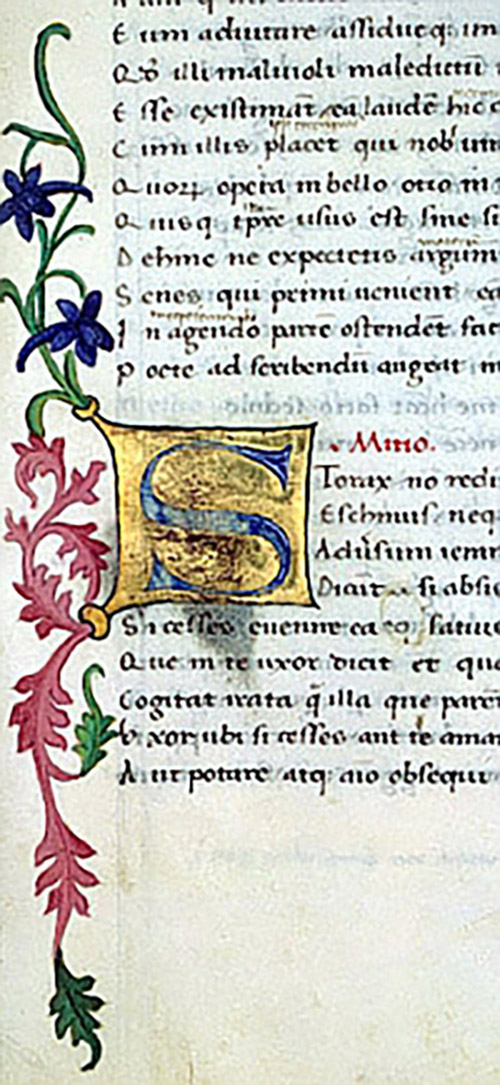 E um adiutare assidueq; im
Qđ illi maliuoli maledictū
E sse existimāt, ea laudē hic
C um illis placet qui nobˡ uni
Quoꝝ opera in bello otio in
Quisq; tp̄re usus est sine s
D ehinc ne expectetis argum
S enes qui primi uenient ea
I n agendo partē ostendēt fac
P oete ad scribendū augeat in
Mitio.
S Torax nō redi
Eschinus neq
Aduersum iemn
Dicāt si absi
Si cesses euenire ea satius
Que in te uxor dicit et que
Cogitat irata q̄ illa que paren
Vxor ubi si cesses aut te amar
Aut potare atq; aio obsequi